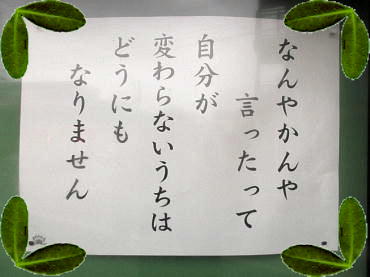 なんやかんや
言ったって
自分が
変わらないうちは
どうにも
なりません